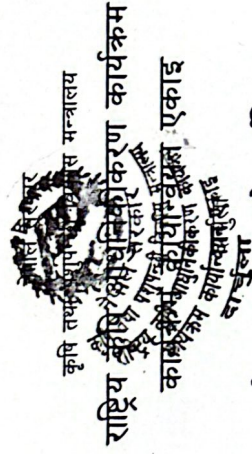 नेपाल सरकार
कृषि तथा पशुपन्छी विकास मन्त्रालय
राष्ट्रिय कृषि आधुनिकीकरण कार्यक्रम
कार्यक्रम कार्यान्वयन एकाइ
दार्चुला